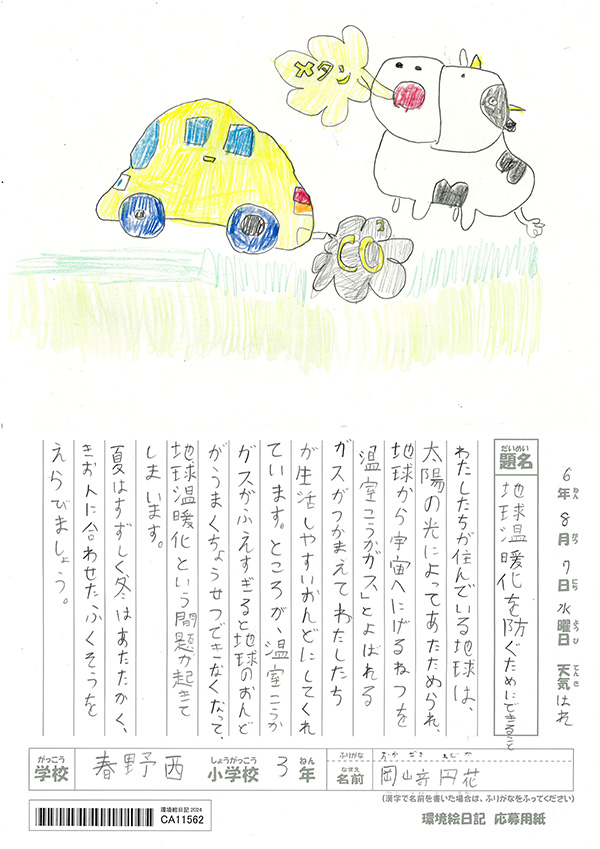 メタン
CO2
6年 8月 7日 水曜日 天気 はれ
ねん がつ にち ようび てんき
だいめい
題名
地球温暖化を防ぐためにできること
わたしたちが住んでいる地球は、
太陽の光によってあたためられ、
地球から宇宙へにげるねつを
「温室こうかガス」とよばれる
ガスがつかまえてわたしたち
が生活しやすいおんどにしてくれ
ています。ところが、温室こうか
ガスがふえすぎると地球のおんど
がうまくちょうせつできなくなって、
地球温暖化という問題が起きて
しまいます。
夏はすずしく冬はあたたかく、
きおんに合わせたふくそうを
えらびましょう。
がっこう しょうがっこう ねん
学校 春野西 小学校 3年
ふりがな おかざき
なまえ
名前 岡山奇 円花
(漢字で名前を書いた場合は、ふりがなをふってください)
環境絵日記 2024
CA11562
環境絵日記 応募用紙